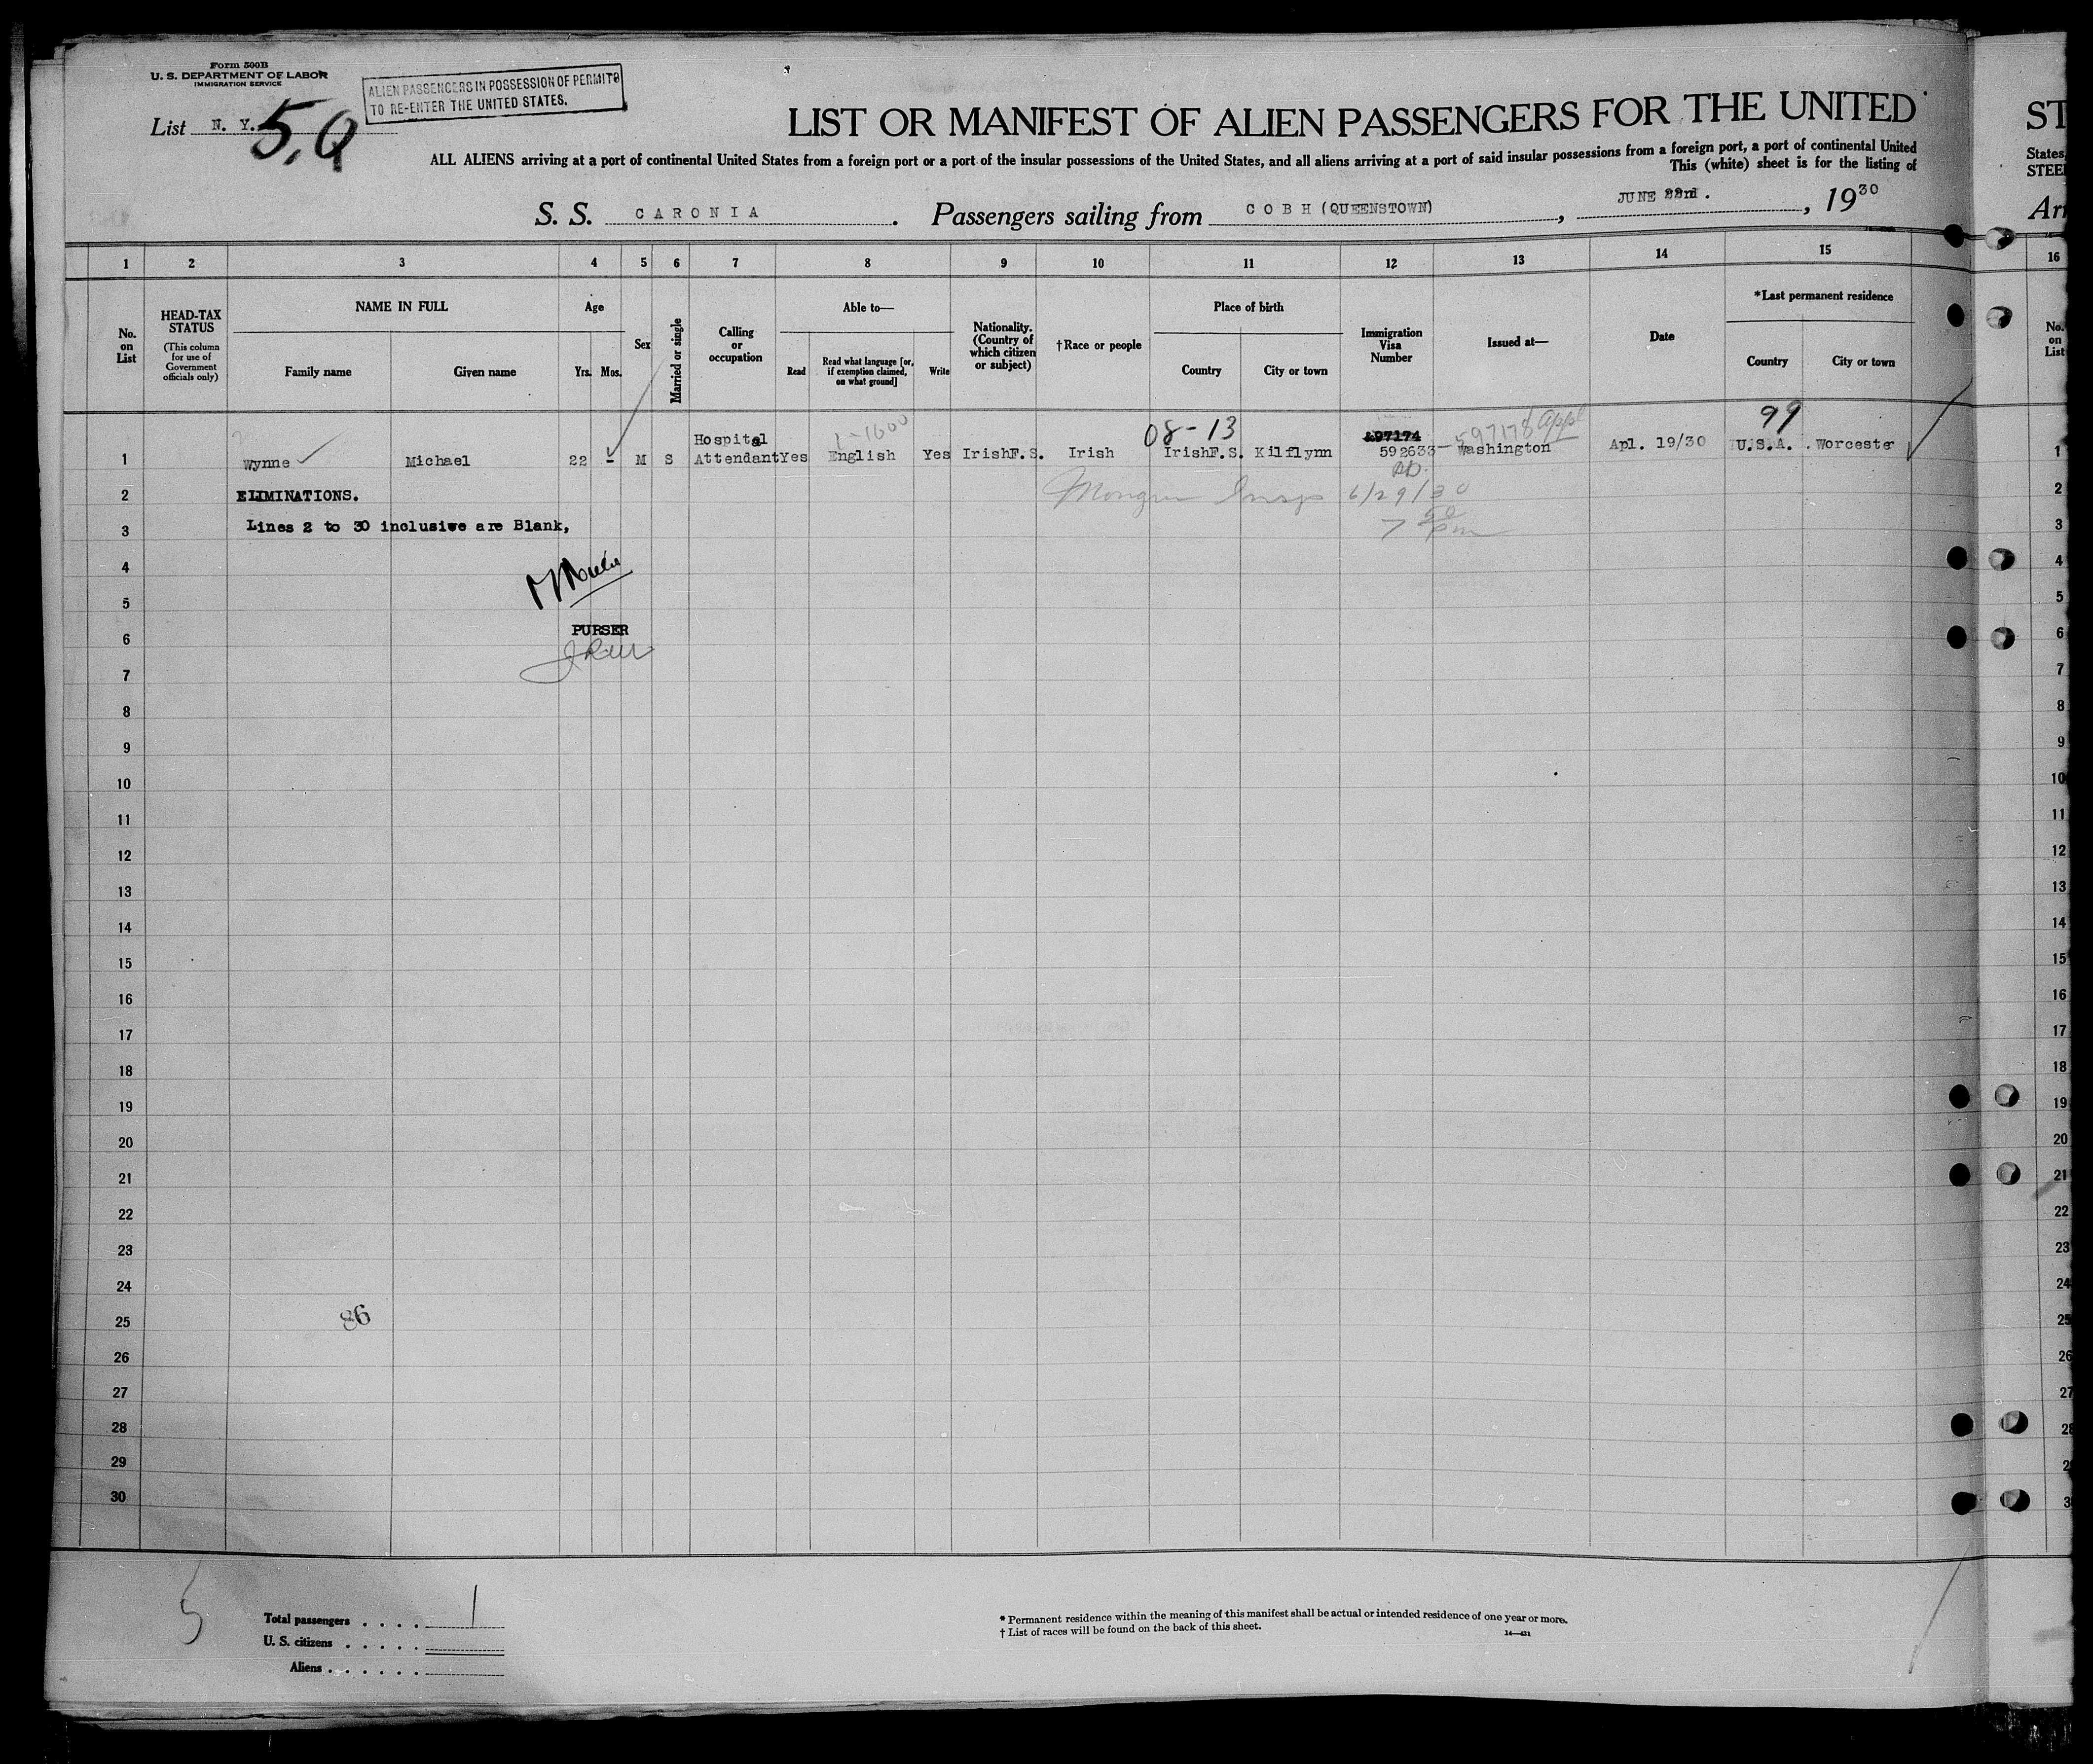 Form 500B
U. S. DEPARTMENT OF LABOR
IMMIGRATION SERVICE
ALIEN PASSENGERS IN POSSESSION OF PERMITS
TO RE-ENTER THE UNITED STATES.
List N. Y. 5, Q
LIST OR MANIFEST OF ALIEN PASSENGERS FOR THE UNITED
ST
ALL ALIENS arriving at a port of continental United States from a foreign port or a port of the insular possessions of the United States, and all aliens arriving at a port of said insular possessions from a foreign port, a port of continental United
States,
This (white) sheet is for the listing of
STEE
S. S. CARONIA. Passengers sailing from COBH (QUEENSTOWN), JUNE 22nd., 1930
Arr
1 2 3 4 5 6 7 8 9 10 11 12 13 14 15 16
No. on List
HEAD-TAX STATUS
(This column for use of Government officials only)
NAME IN FULL
Family name Given name
Age
Yrs. Mos.
Sex
Married or single
Calling or occupation
Able to—
Read
Read what language [or, if exemption claimed, on what ground]
Write
Nationality. (Country of which citizen or subject)
†Race or people
Place of birth
Country City or town
Immigration Visa Number
Issued at—
Date
*Last permanent residence
Country City or town
No. on List
08-13
597178 appl
99
1 Wynne Michael 22 - M S Hospital Attendant Yes English Yes Irish F.S. Irish Irish F.S. Kilflynn 592633 Washington Apl. 19/30 U.S.A. Worcester 1
2 ELIMINATIONS. Insp 6/29/30 2
3 Lines 2 to 30 inclusive are Blank, 7 50 pm 3
4 4
5 5
PURSER
6 6
7 7
8 8
9 9
10 10
11 11
12 12
13 13
14 14
15 15
16 16
17 17
18 18
19 19
20 20
21 21
22 22
23 23
24 24
86
25 25
26 26
27 27
28 28
29 2
30 3
5
Total passengers . . . . 1
U. S. citizens . . . . .
Aliens . . . . . .
* Permanent residence within the meaning of this manifest shall be actual or intended residence of one year or more.
† List of races will be found on the back of this sheet.
14—431